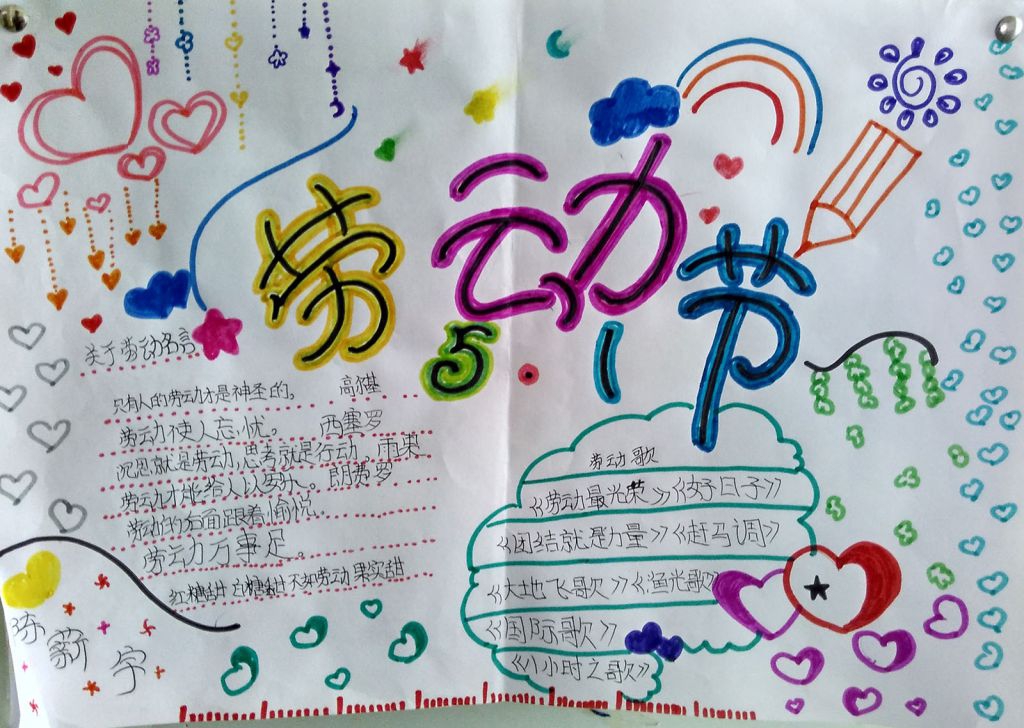 劳动节
5 1
关于劳动名言
只有人的劳动才是神圣的。 高尔基
劳动使人忘忧。 西塞罗
沉思就是劳动,思考就是行动。雨果
劳动才能给人以安乐。朗费罗
劳动的后面跟着愉悦。
劳动力万事足。
红糖甜 白糖甜 不如劳动果实甜
劳动歌
《劳动最光荣》《好日子》
《团结就是力量》《赶马调》
《大地飞歌》《渔光歌
《国际歌》
《八小时之歌》
陈
薪
宇